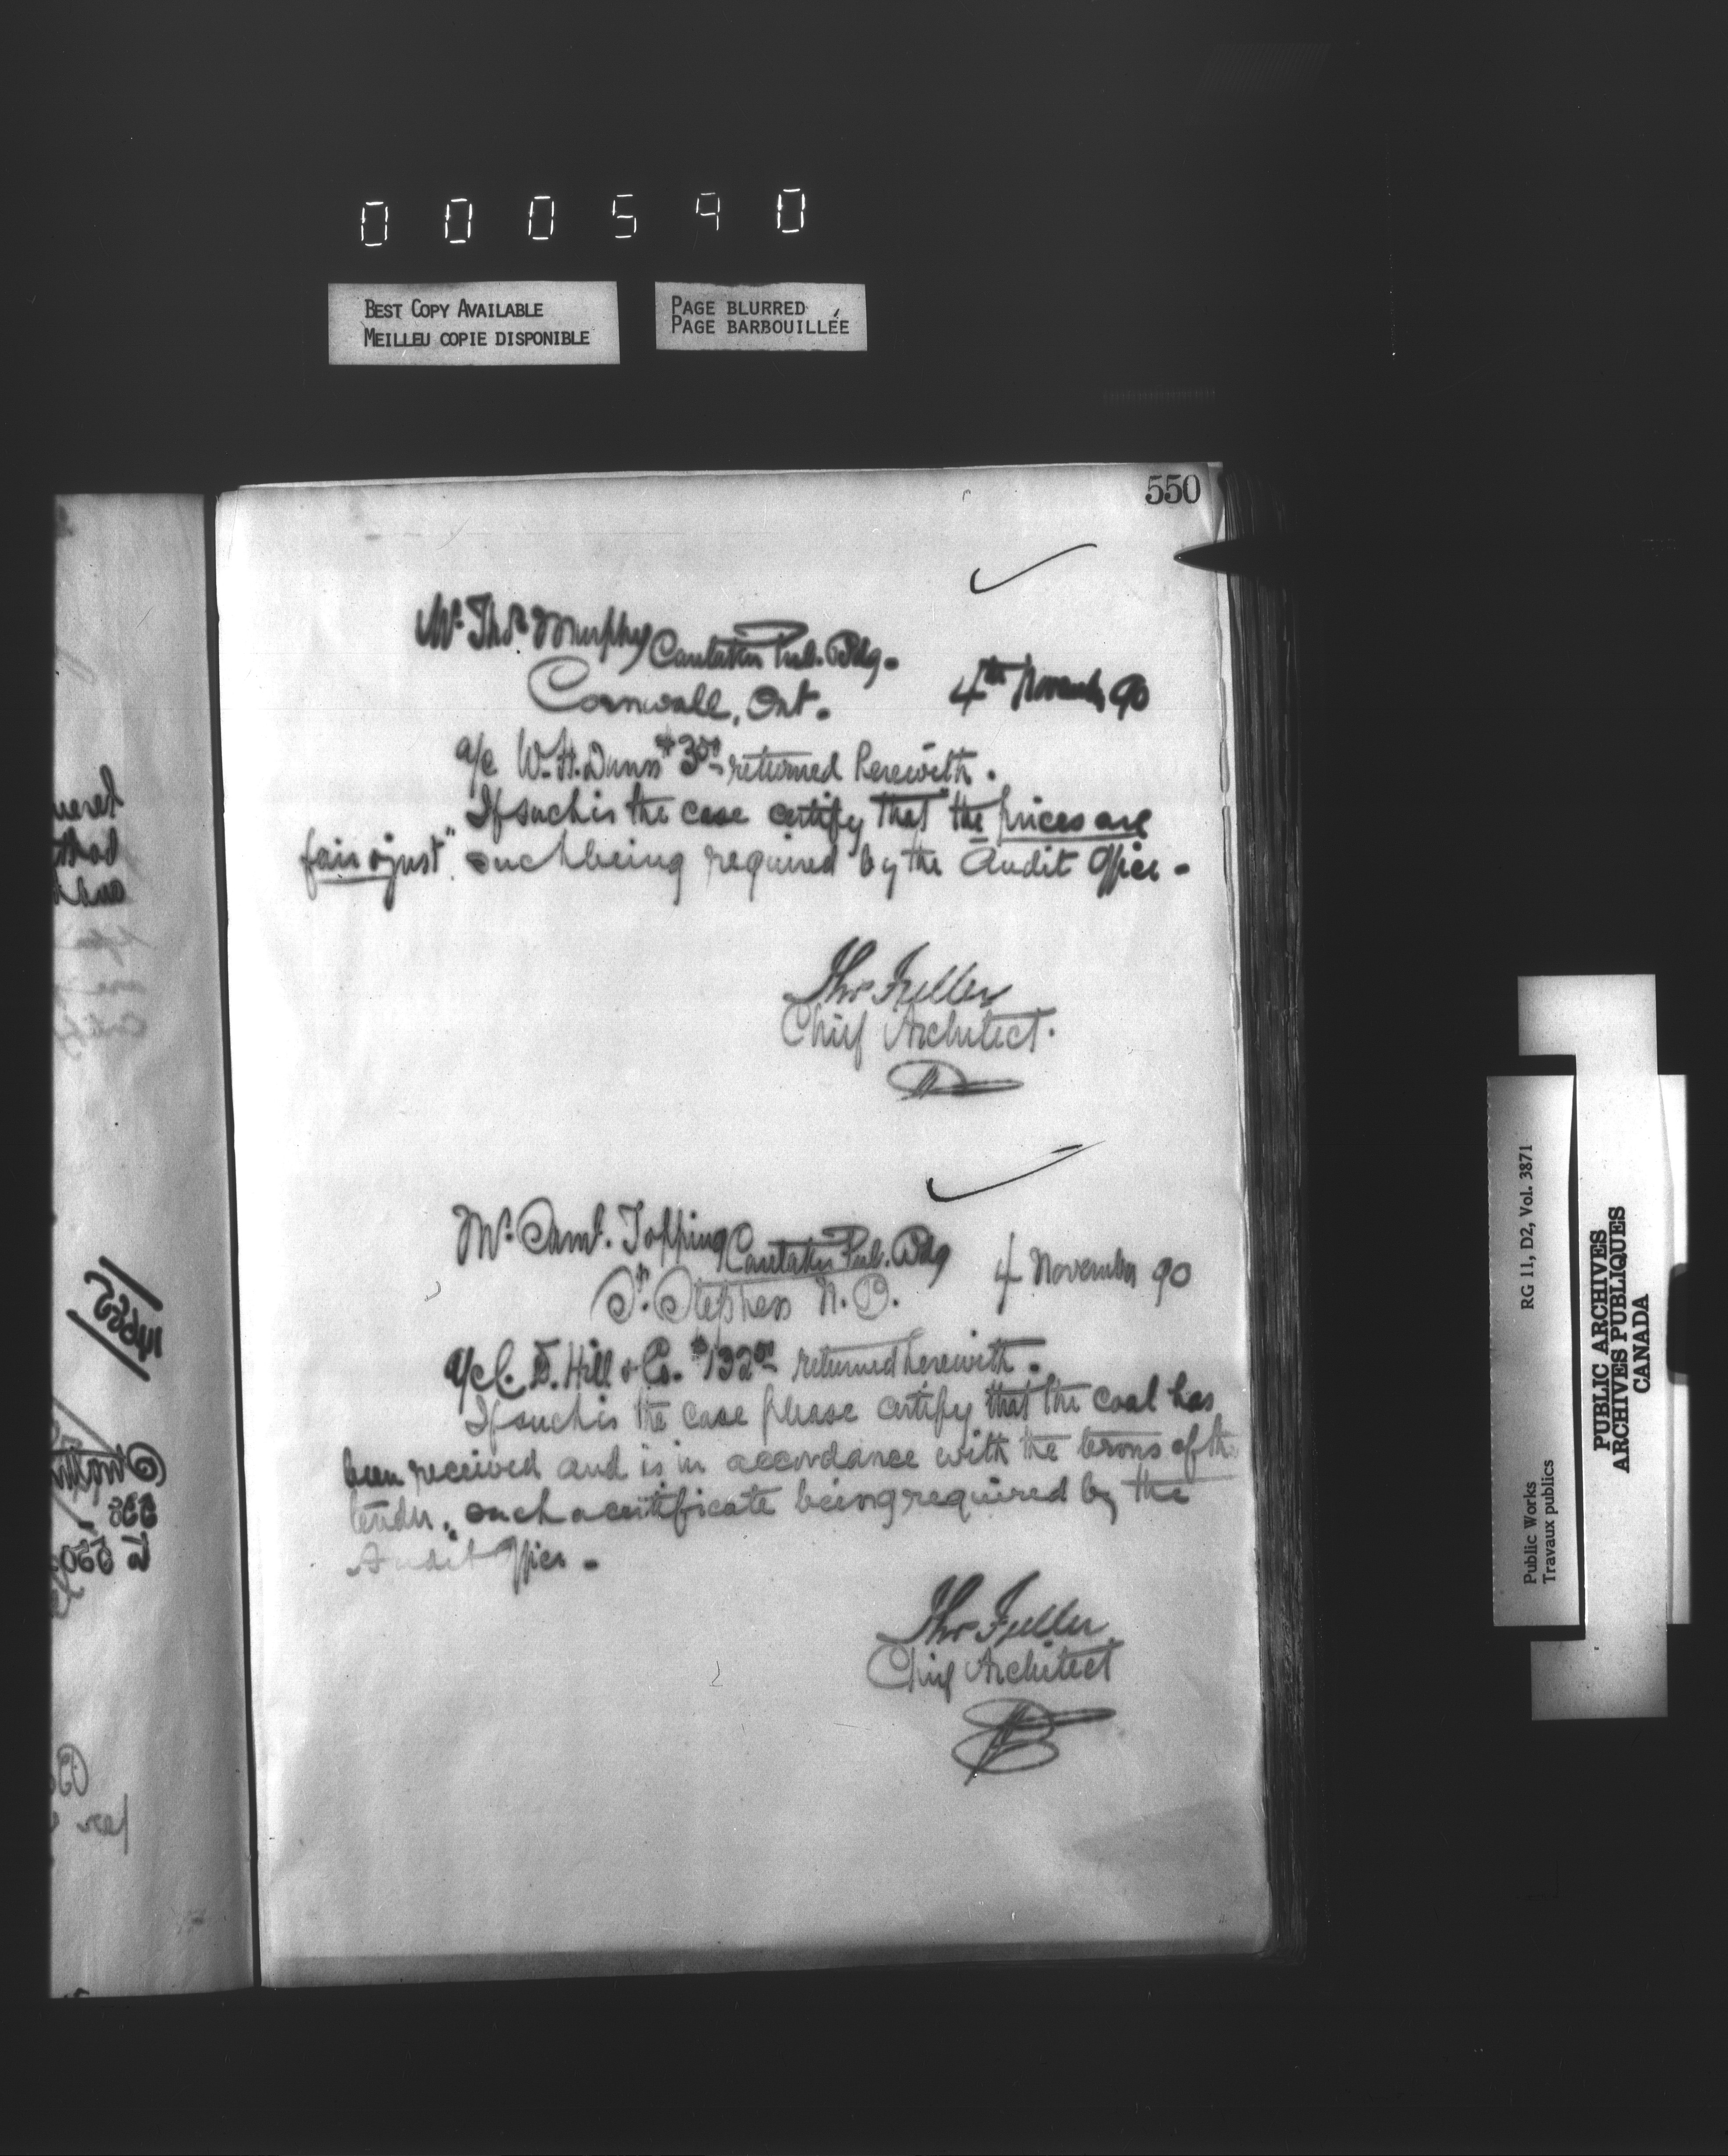 000590
BEST COPY AVAILABLE
MEILLEU COPIE DISPONIBLE
PAGE BLURRED
PAGE BARBOUILLÉE
550
Mr. Thos Murphy Caretaker Pub. Bdg.
Cornwall, Ont.
4th November 90
a/c W. H. Dunn $3.00 returned herewith.
If such is the case certify that "the prices are
fair & just". such being required by the Audit Office.
Thos Fuller
Chief Architect.
Mr. Saml. Topping Caretaker Pub. Bdg
St. Stephen N. B.
4 November 90
a/c C. E. Hill & Co. $132.00 returned herewith.
If such is the case please certify that the coal has
been received and is in accordance with the terms of the
tender." such a certificate being required by the
Audit Office.
Thos Fuller
Chief Architect
RG 11, D2, Vol. 3871
Public Works
Travaux publics
PUBLIC ARCHIVES
ARCHIVES PUBLIQUES
CANADA